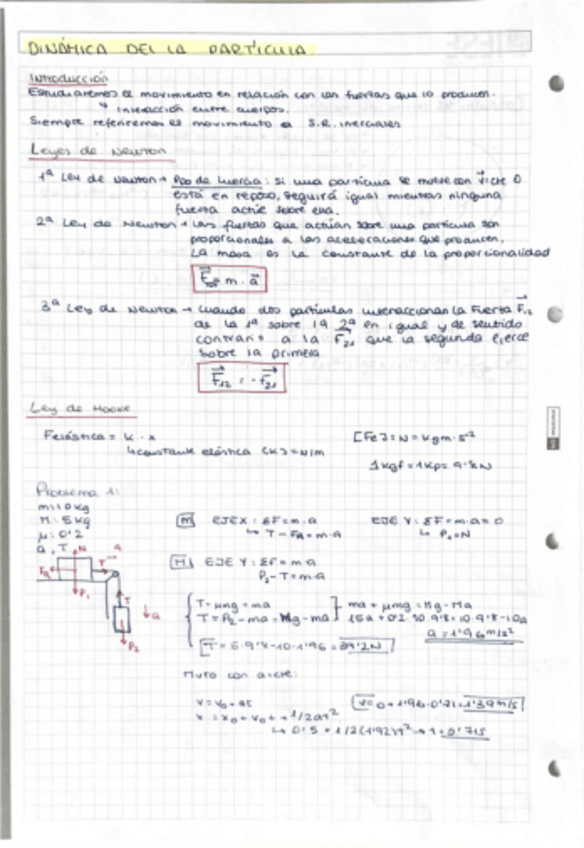 DINÁMICA DE LA PARTÍCULA
Introducción
Estudiaremos el movimiento en relación con las fuerzas que lo producen.
↳ interacción entre cuerpos.
Siempre referiremos el movimiento a S.R. inerciales
Leyes de Newton
1ª Ley de Newton → Ppo de inercia: si una partícula se mueve con v⃗ cte o
está en reposo, seguirá igual mientras ninguna
fuerza actúe sobre ella.
2ª Ley de Newton → Las fuerzas que actúan sobre una partícula son
proporcionales a las aceleraciones que producen.
La masa es la constante de la proporcionalidad
= m · a⃗
3ª Ley de Newton → Cuando dos partículas interaccionan la fuerza F⃗12
de la 1ª sobre la 2ª en igual y de sentido
contrario a la F⃗21 que la segunda ejerce
sobre la primera
F⃗12 = - F⃗21
Ley de Hooke
Felástica = K · x
[Fe] = N = kgm·s⁻²
↳ constante elástica [K] = N/m
1kgf = 1kp = 9'8N
Problema 1:
m: 10kg
M: 5kg
μ: 0'2
a, T
[m] EJE X: ΣF = m·a
EJE Y: ΣF = m·a = 0
↳ T - FR = m·a
↳ P1 = N
[M] EJE Y: ΣF = m·a
P2 - T = m·a
T - μmg = ma
ma + μmg = Mg - Ma
T = P2 - ma = Mg - ma
a = 1'96 m/s²
T = 5·9'8 - 10·1'96 = 39'2N
Mvto con a cte:
v = v0 + at
v = 0 + 1'96·0'71 = 1'39 m/s
x = x0 + v0t + 1/2at²
↳ 0'5 = 1/2(1'92)t² → t = 0'71s